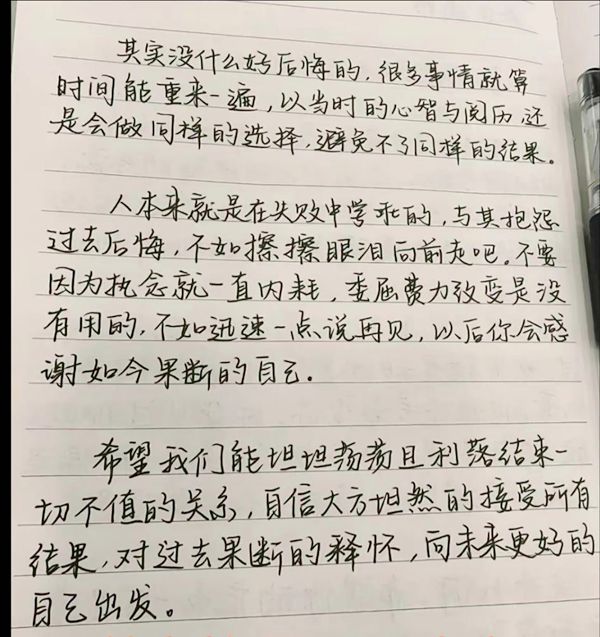 其实没什么好后悔的，很多事情就算
时间能重来一遍，以当时的心智与阅历，还
是会做同样的选择，避免不了同样的结果。
人本来就是在失败中学乖的，与其抱怨
过去后悔，不如擦擦眼泪向前走吧。不要
因为执念就一直内耗，委屈费力改变是没
有用的，不如迅速一点说再见，以后你会感
谢如今果断的自己。
希望我们能坦坦荡荡且利落结束一
切不值的关系，自信大方坦然的接受所有
结果，对过去果断的释怀，向未来更好的
自己出发。